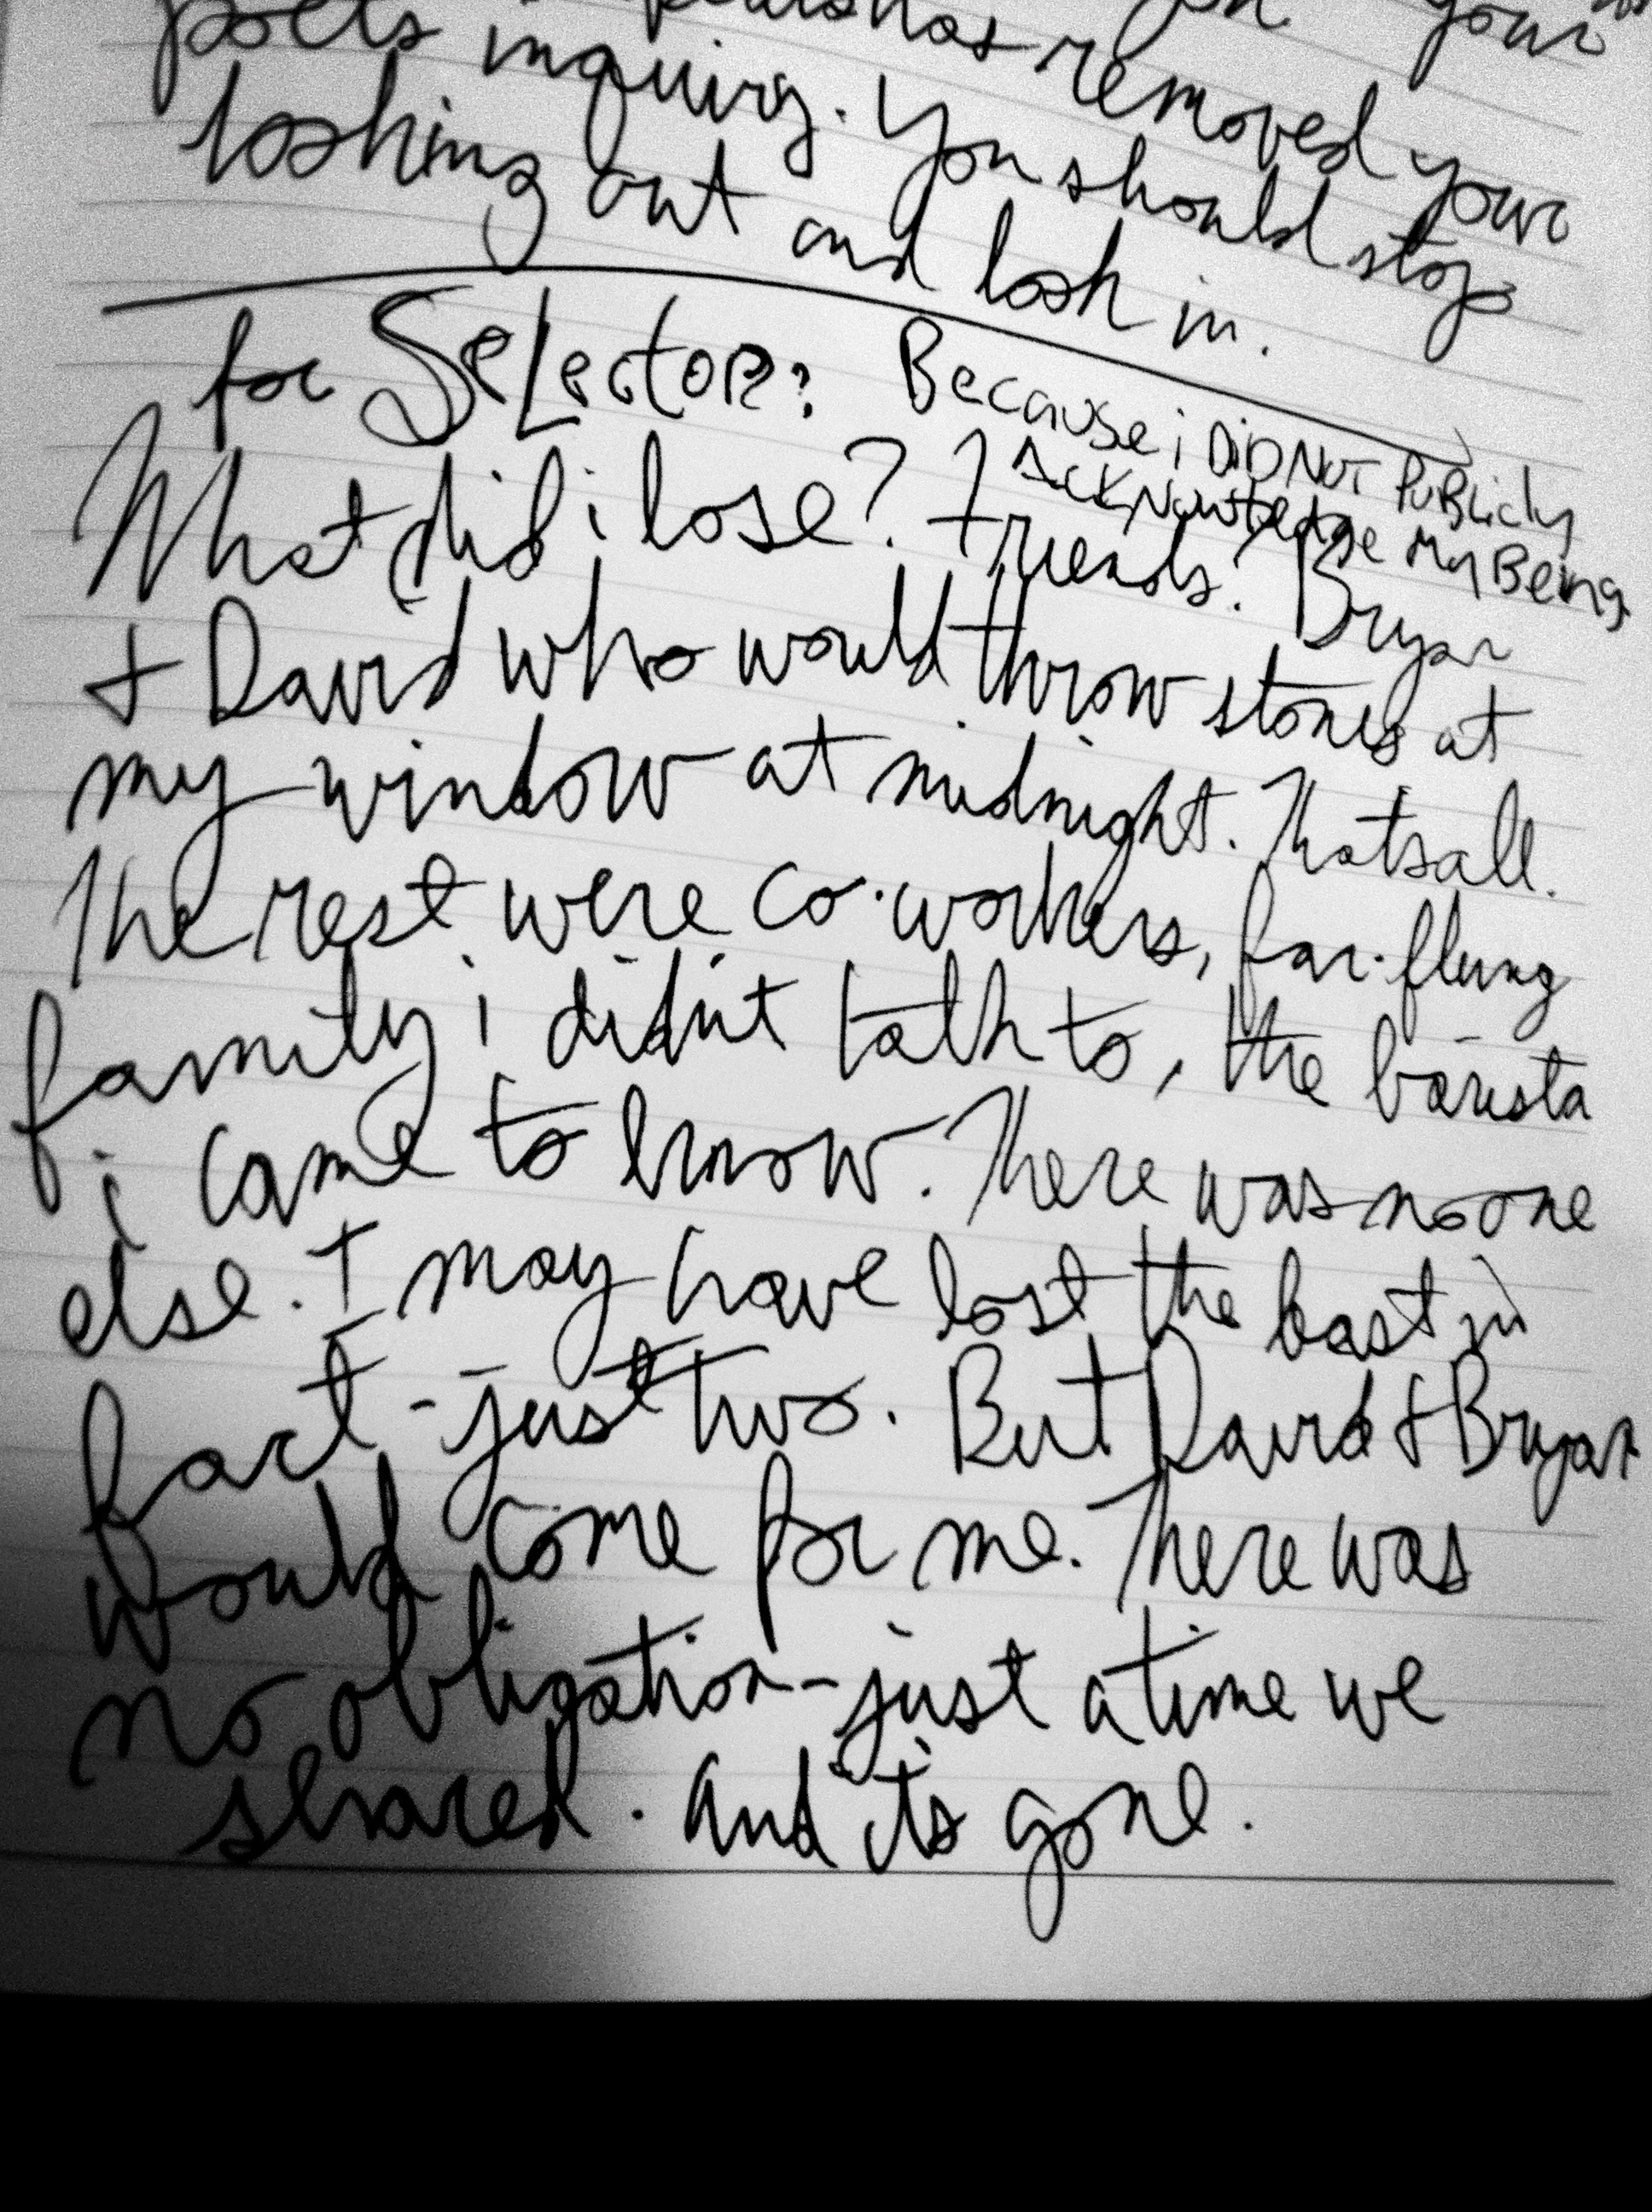 your
has removed your
poets inquiry. You should stop
looking out and look in.
for SeLector: Because i DiD Not PuBLicly
Acknowledge my Being
What did i lose? Friends? Bryan
+ David who would throw stones at
my window at midnight. Thatsall.
The rest were co-workers, far-flung
family i didn't talk to, the barista
i came to know. There was no one
else. I may have lost the best in
fact - just two. But David & Bryan
would come for me. There was
no obligation - just a time we
shared. And its gone.